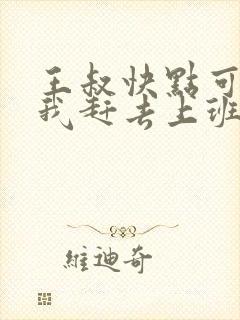 王叔快點可
我赶去上班
維迪奇